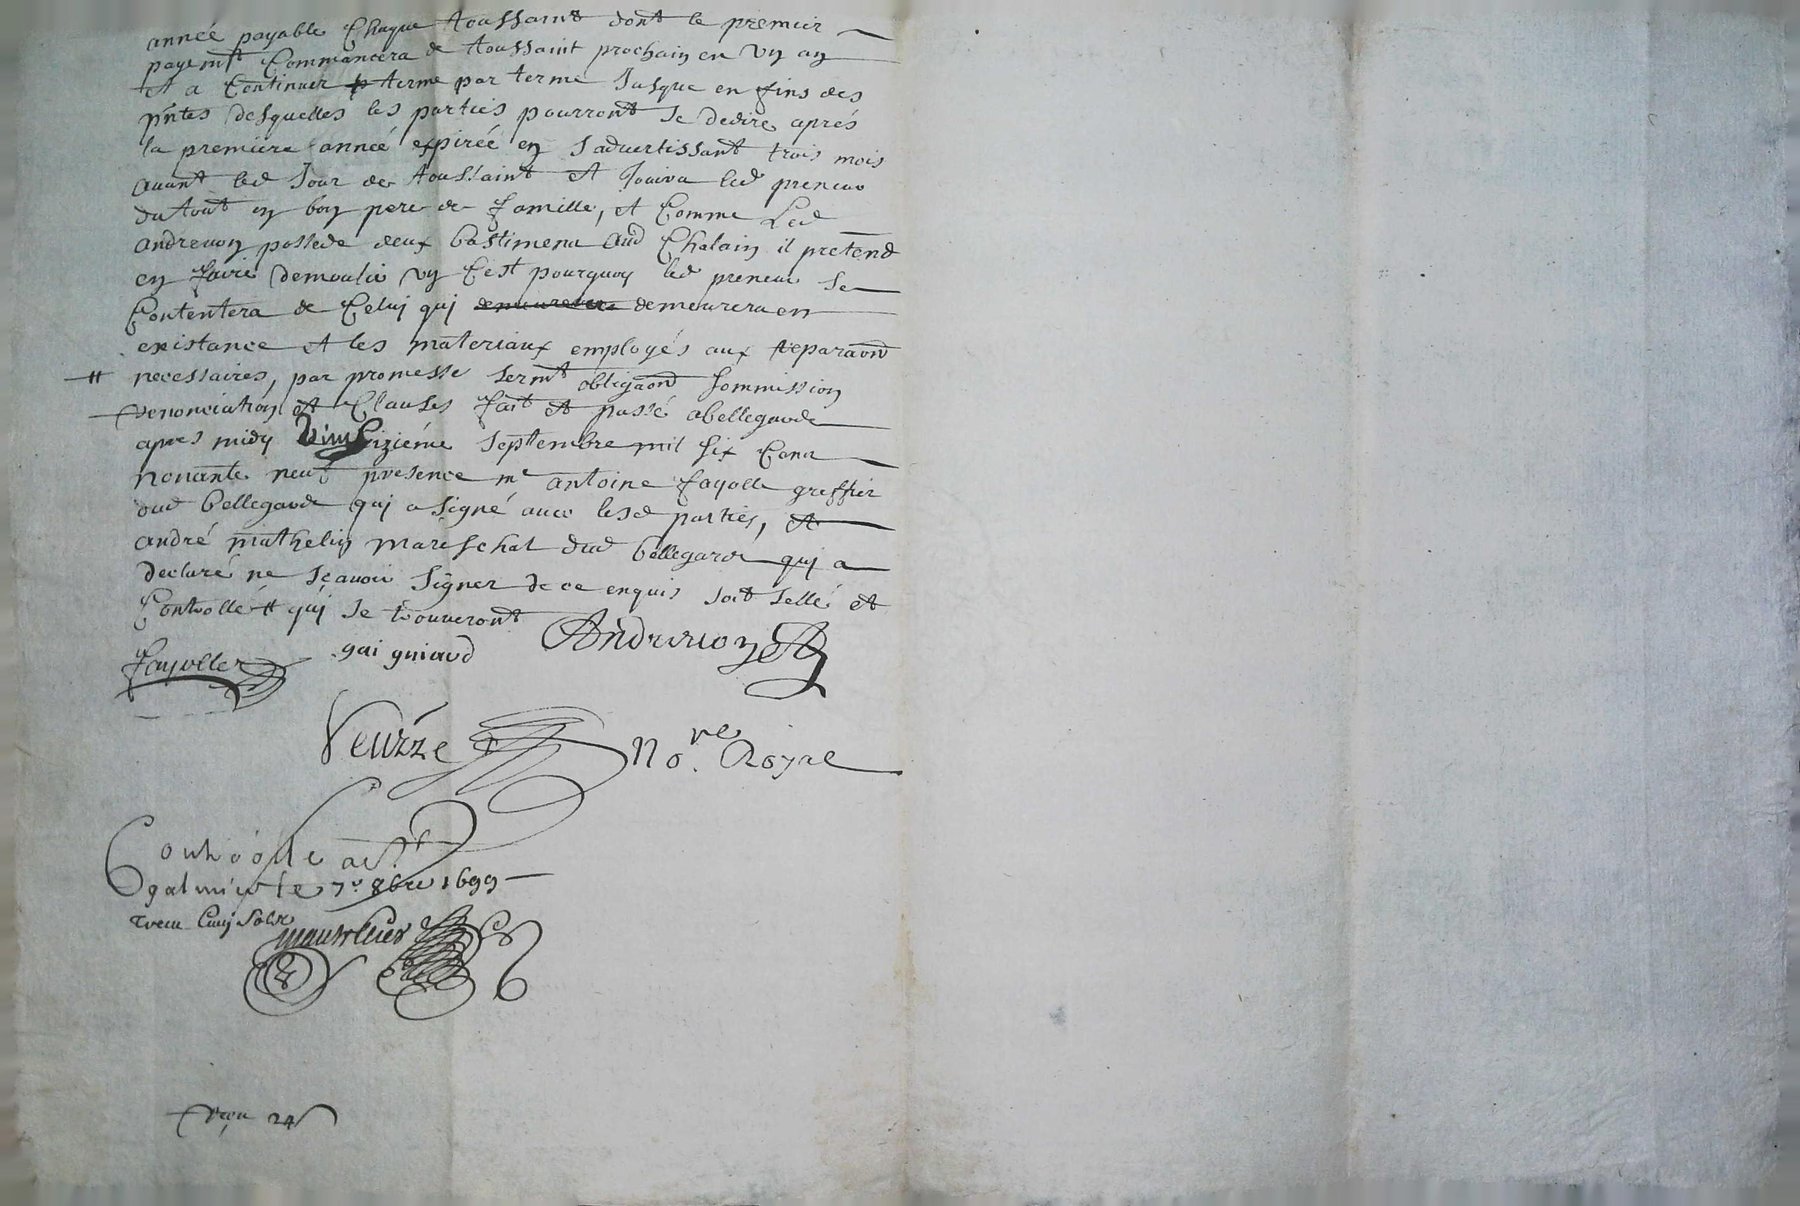 année payable Chaque toussaint dont le premier
payemt Commancera de toussaint prochain en Un an
et a Continuer terme par terme Jusque en fins des
pntes desquelles les parties pourront Se dedire aprés
la premiere année expirée en S'advertissant trois mois
avant led Jour de toussaint et Jouira led preneur
du tout en bon pere de famille, et Comme Led
andrevon possede deux bastimens aud Chalain il prétend
en faire demoulir un C'est pourquoy led preneur Se
Contentera de Celuy quj demeurera demeurera en
existance et les materiaux employés aux reparaond
# necessaires, par promesse Sermt obligaond Sommission
renonciation et Clauses fait et passé a bellegarde
apres midy Vintsizieme Septembre mil Six Cens
nonante neuf presence me antoine fayolle greffier
dud bellegarde quj a Signé avec lesd parties, et
andré mathelin mareschal dud bellegarde quj a
declaré ne Sçavoir Signer de ce enquis soit Sellé et
Controllé # quj Se trouveront
fayolle gaj guiaud Andrevon
Veuzze No.re Royal
Controlle a St
galmier le 7e 8bre 1699
receu Cinq Solz
reçu 24 s